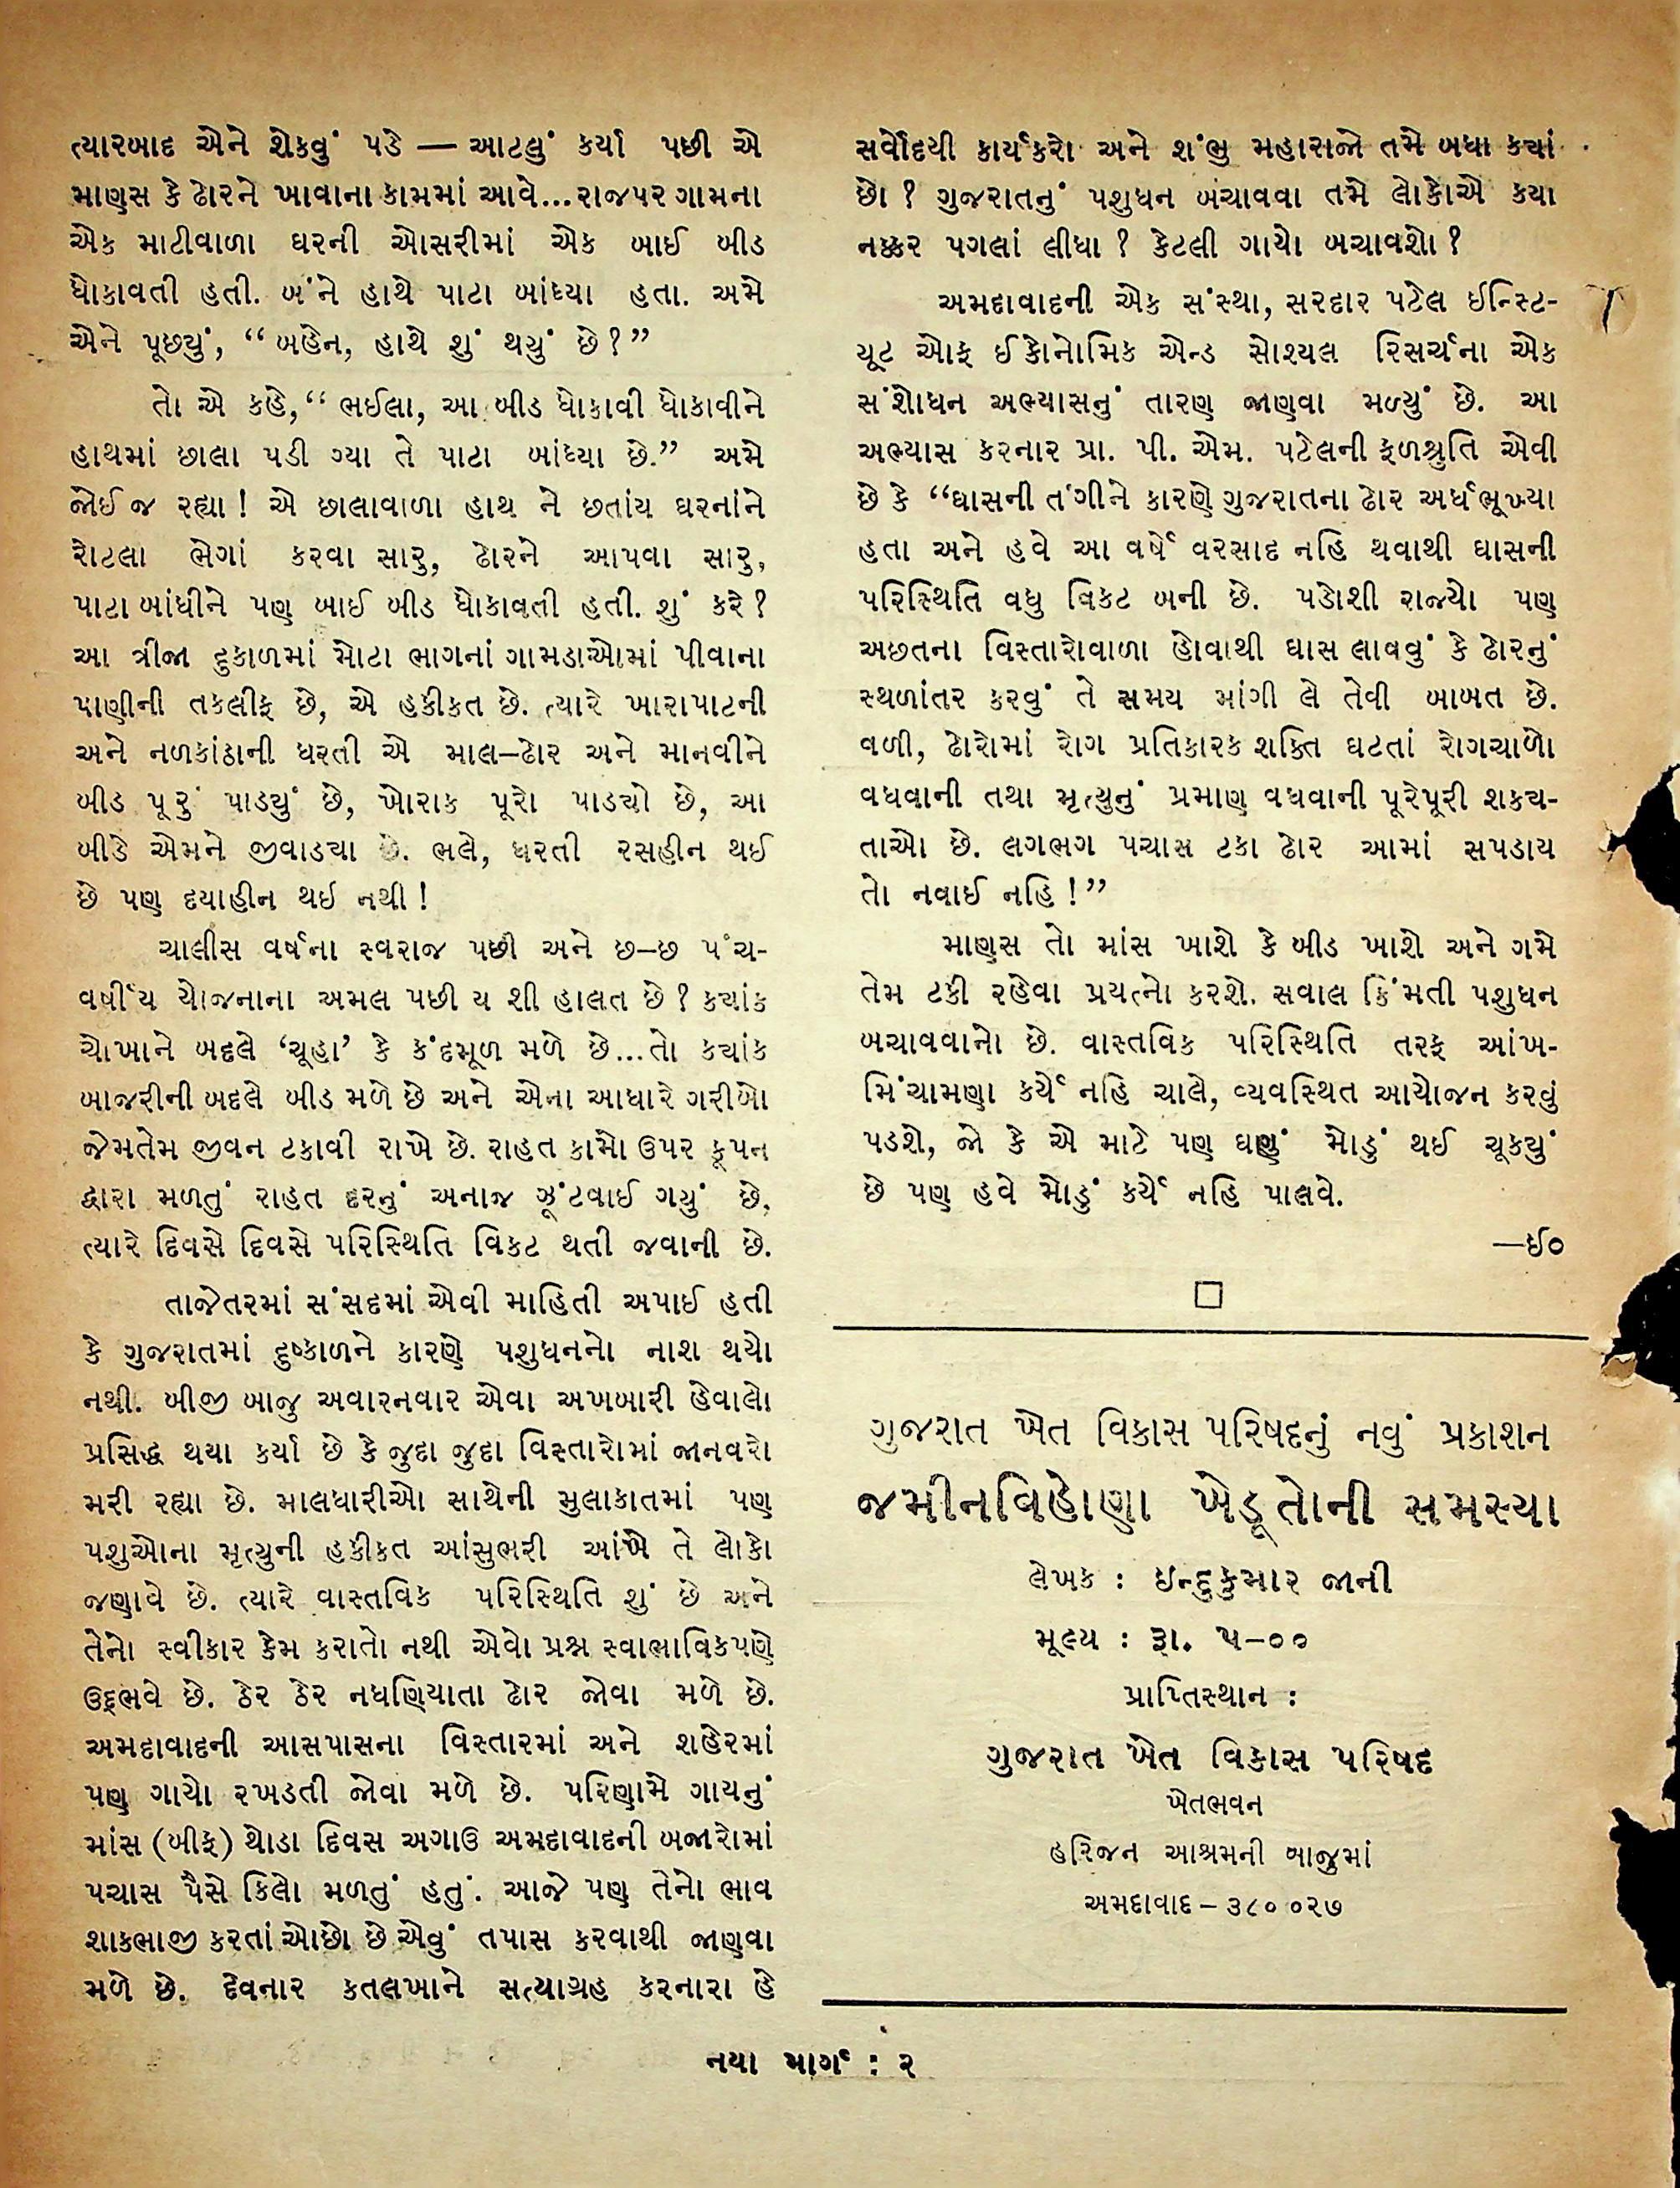 ત્યારબાદ એને શેકવું પડે — આટલું કર્યા પછી એ
માણસ કે ઢોરને ખાવાના કામમાં આવે...રાજપર ગામના
એક માટીવાળા ઘરની ઓસરીમાં એક બાઈ બીડ
ધોકાવતી હતી. બંને હાથે પાટા બાંધ્યા હતા. અમે
એને પૂછ્યું, “બહેન, હાથે શું થયું છે?”
તો એ કહે, “ભઈલા, આ બીડ ધોકાવી ધોકાવીને
હાથમાં છાલા પડી ગ્યા તે પાટા બાંધ્યા છે.” અમે
જોઈ જ રહ્યા! એ છાલાવાળા હાથ ને છતાંય ઘરનાંને
રોટલા ભેગાં કરવા સારુ, ઢોરને આપવા સારુ,
પાટા બાંધીને પણ બાઈ બીડ ધોકાવતી હતી. શું કરે?
આ ત્રીજા દુકાળમાં મોટા ભાગનાં ગામડાઓમાં પીવાના
પાણીની તકલીફ છે, એ હકીકત છે. ત્યારે ખારાપાટની
અને નળકાંઠાની ધરતી એ માલ–ઢોર અને માનવીને
બીડ પૂરું પાડ્યું છે, ખોરાક પૂરો પાડ્યો છે, આ
બીડે એમને જીવાડ્યા છે. ભલે, ધરતી રસહીન થઈ
છે પણ દયાહીન થઈ નથી!
ચાલીસ વર્ષના સ્વરાજ પછી અને છ–છ પંચ-
વર્ષીય યોજનાના અમલ પછી ય શી હાલત છે? ક્યાંક
ચોખાને બદલે ‘ચૂહા’ કે કંદમૂળ મળે છે...તો ક્યાંક
બાજરીની બદલે બીડ મળે છે અને એના આધારે ગરીબો
જેમતેમ જીવન ટકાવી રાખે છે. રાહત કામો ઉપર કૂપન
દ્વારા મળતું રાહત દરનું અનાજ ઝૂંટવાઈ ગયું છે,
ત્યારે દિવસે દિવસે પરિસ્થિતિ વિકટ થતી જવાની છે.
તાજેતરમાં સંસદમાં એવી માહિતી અપાઈ હતી
કે ગુજરાતમાં દુષ્કાળને કારણે પશુધનનો નાશ થયો
નથી. બીજી બાજુ અવારનવાર એવા અખબારી હેવાલો
પ્રસિદ્ધ થયા કર્યા છે કે જુદા જુદા વિસ્તારોમાં જાનવરો
મરી રહ્યા છે. માલધારીઓ સાથેની મુલાકાતમાં પણ
પશુઓના મૃત્યુની હકીકત આંસુભરી આંખે તે લોકો
જણાવે છે. ત્યારે વાસ્તવિક પરિસ્થિતિ શું છે અને
તેનો સ્વીકાર કેમ કરાતો નથી એવો પ્રશ્ન સ્વાભાવિકપણે
ઉદ્દભવે છે. ઠેર ઠેર નધણિયાતા ઢોર જોવા મળે છે.
અમદાવાદની આસપાસના વિસ્તારમાં અને શહેરમાં
પણ ગાયો રખડતી જોવા મળે છે. પરિણામે ગાયનું
માંસ (બીફ) થોડા દિવસ અગાઉ અમદાવાદની બજારોમાં
પચાસ પૈસે કિલો મળતું હતું. આજે પણ તેનો ભાવ
શાકભાજી કરતાં ઓછો છે એવું તપાસ કરવાથી જાણવા
મળે છે. દેવનાર કતલખાને સત્યાગ્રહ કરનારા હે
સર્વોદયી કાર્યકરો અને શંભુ મહારાજો તમે બધા ક્યાં
છો? ગુજરાતનું પશુધન બચાવવા તમે લોકોએ કયા
નક્કર પગલાં લીધા? કેટલી ગાયો બચાવશો?
અમદાવાદની એક સંસ્થા, સરદાર પટેલ ઈન્સ્ટિ-
ચૂટ ઓફ ઈકોનોમિક એન્ડ સોશ્યલ રિસર્ચના એક
સંશોધન અભ્યાસનું તારણ જાણવા મળ્યું છે. આ
અભ્યાસ કરનાર પ્રા. પી. એમ. પટેલની ફળશ્રુતિ એવી
છે કે “ઘાસની તંગીને કારણે ગુજરાતના ઢોર અર્ધભૂખ્યા
હતા અને હવે આ વર્ષે વરસાદ નહિ થવાથી ઘાસની
પરિસ્થિતિ વધુ વિકટ બની છે. પડોશી રાજ્યો પણ
અછતના વિસ્તારોવાળા હોવાથી ઘાસ લાવવું કે ઢોરનું
સ્થળાંતર કરવું તે સમય માંગી લે તેવી બાબત છે.
વળી, ઢોરોમાં રોગ પ્રતિકારક શક્તિ ઘટતાં રોગચાળો
વધવાની તથા મૃત્યુનું પ્રમાણ વધવાની પૂરેપૂરી શક્ય-
તાઓ છે. લગભગ પચાસ ટકા ઢોર આમાં સપડાય
તો નવાઈ નહિ!”
માણસ તો માંસ ખાશે કે બીડ ખાશે અને ગમે
તેમ ટકી રહેવા પ્રયત્નો કરશે. સવાલ કિંમતી પશુધન
બચાવવાનો છે. વાસ્તવિક પરિસ્થિતિ તરફ આંખ-
મિંચામણા કર્યે નહિ ચાલે, વ્યવસ્થિત આયોજન કરવું
પડશે, જો કે એ માટે પણ ઘણું મોડું થઈ ચૂક્યું
છે પણ હવે મોડું કર્યે નહિ પાલવે.
—ઈ૦
ગુજરાત ખેત વિકાસ પરિષદનું નવું પ્રકાશન
જમીનવિહોણા ખેડૂતોની સમસ્યા
લેખક : ઇન્દુકુમાર જાની
મૂલ્ય : રૂા. ૫–૦૦
પ્રાપ્તિસ્થાન :
ગુજરાત ખેત વિકાસ પરિષદ
ખેતભવન
હરિજન આશ્રમની બાજુમાં
અમદાવાદ – ૩૮૦ ૦૨૭
નયા માર્ગ : ૨